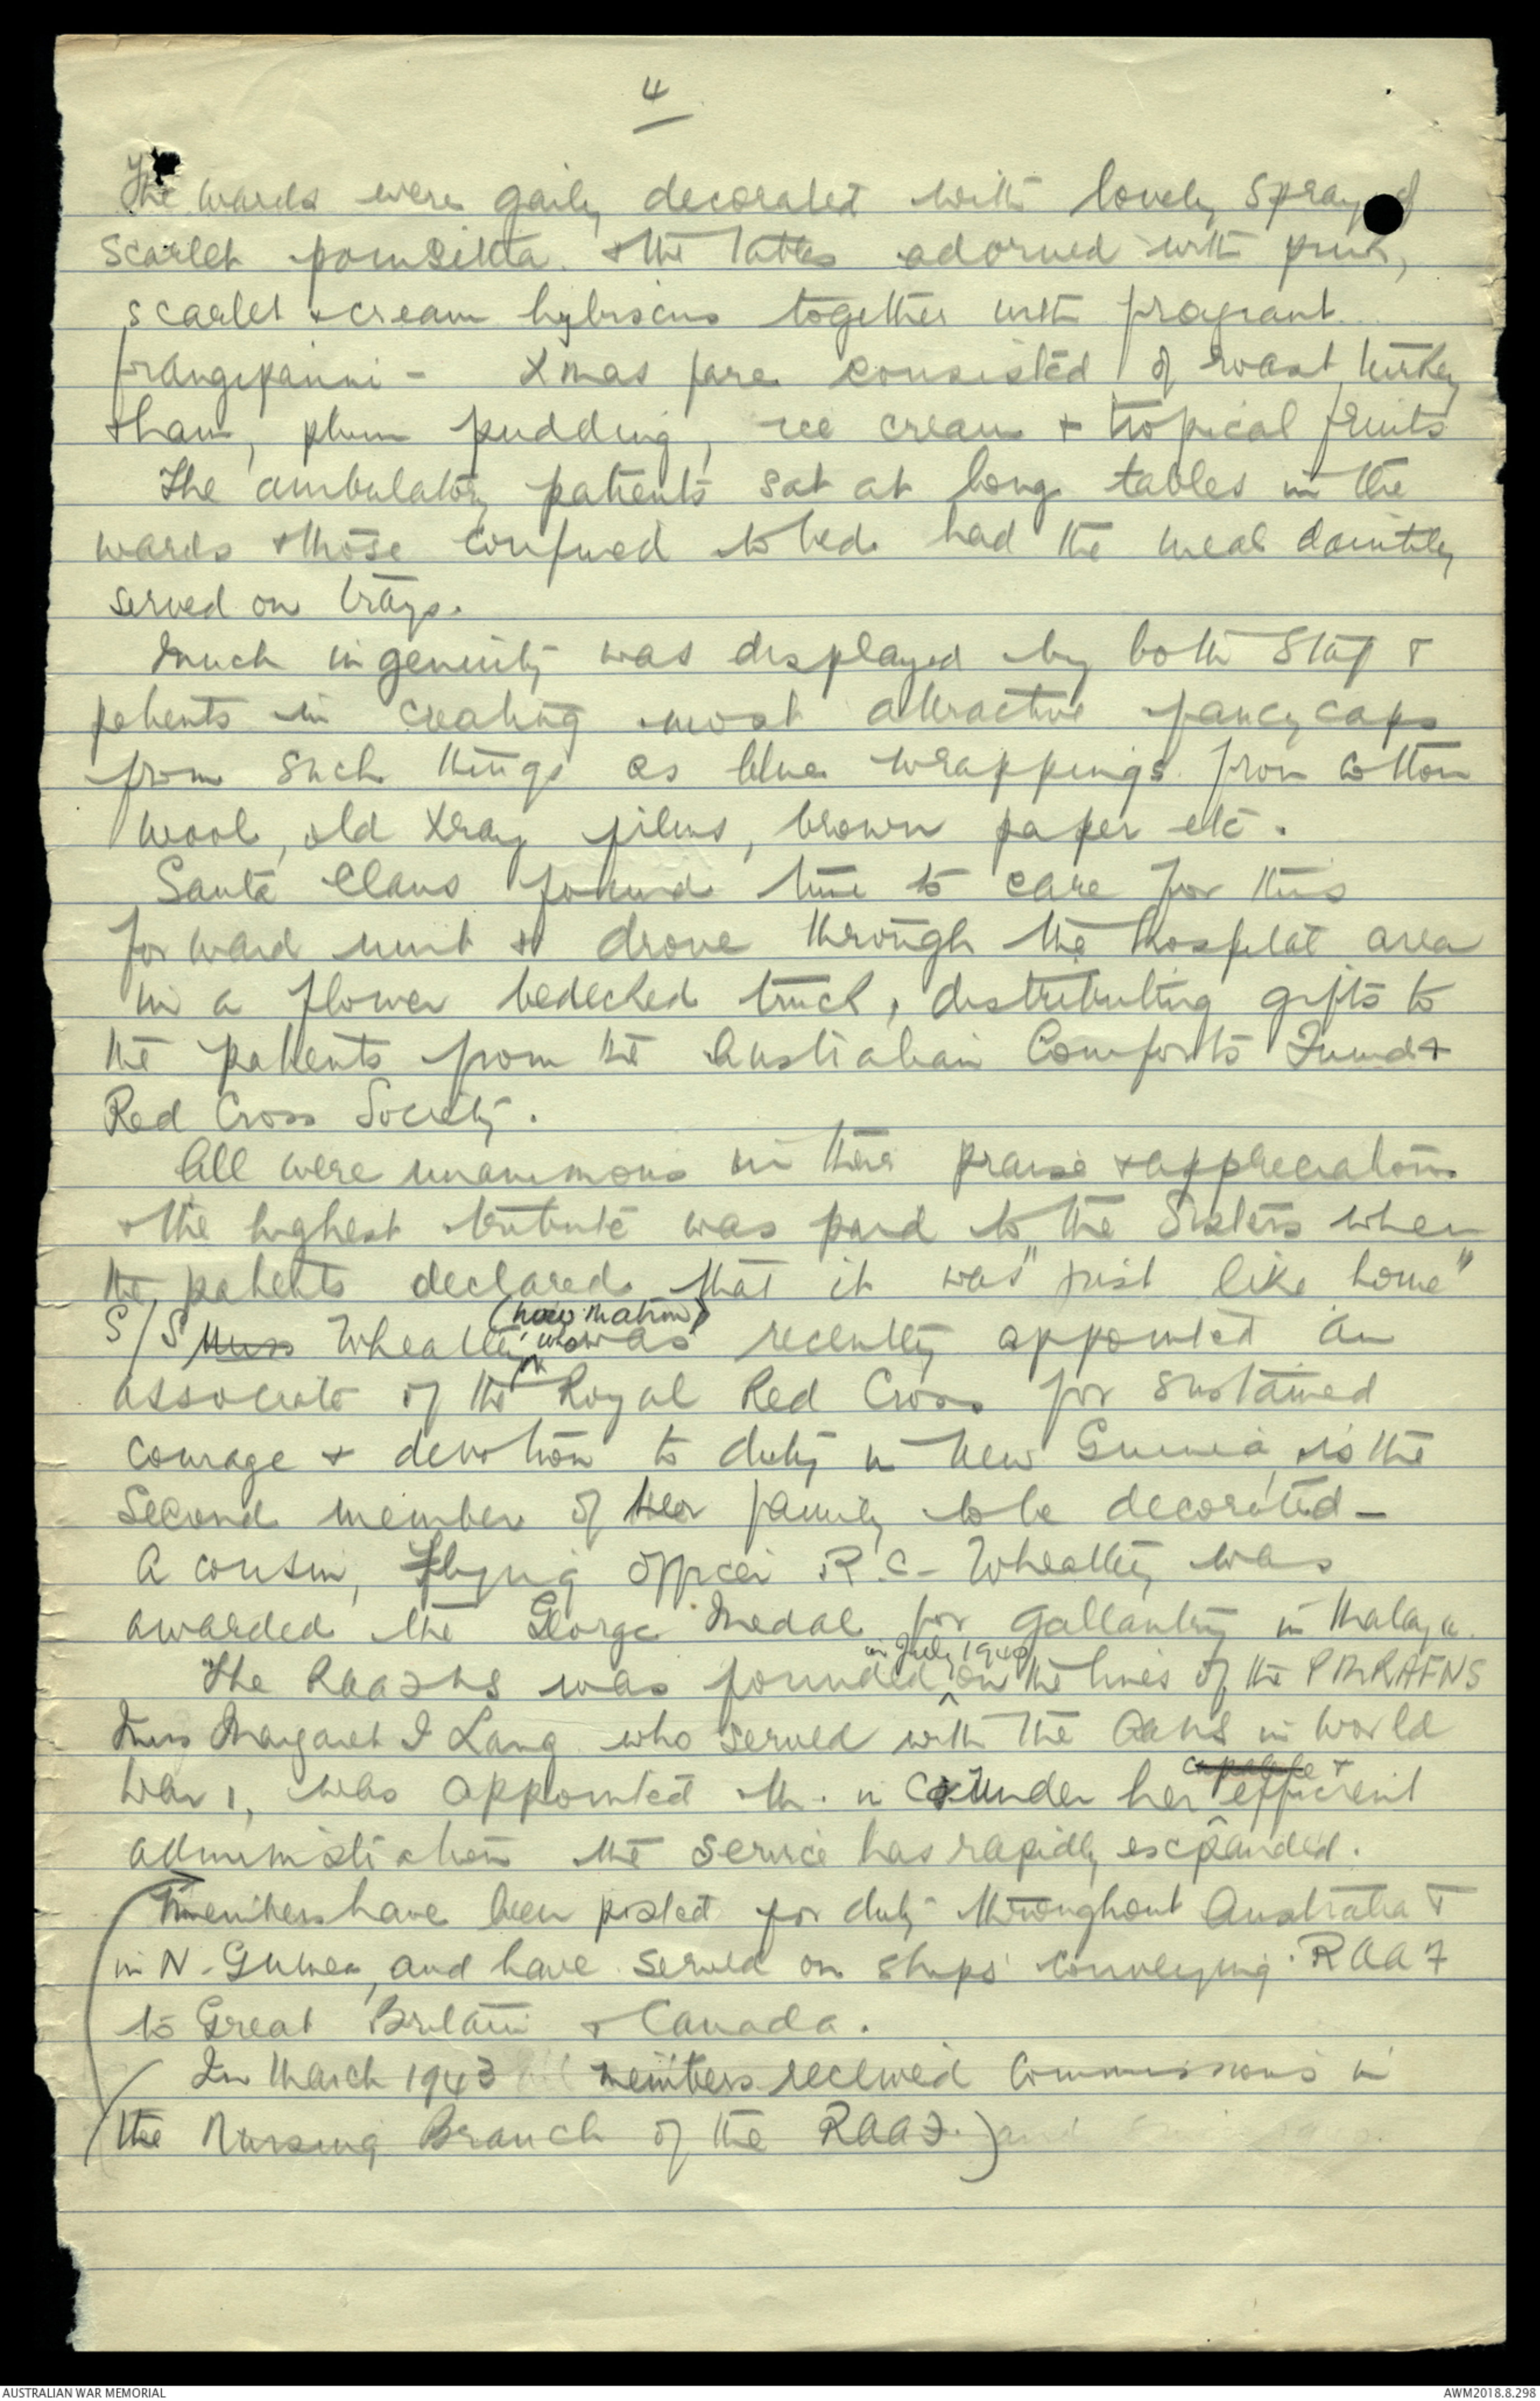 4
The wards were gaily decorated with lovely sprays of
scarlet poinsettia. & the tables adorned with pink,
scarlet & cream hybiscus together with fragrant
frangipanni - Xmas fare consisted of roast turkey
& ham, plum pudding, ice cream & tropical fruits
The ambulatory patients sat at long tables in the
wards & those confined to bed had the meal daintily
served on trays.
Much ingenuity was displayed by both staff &
patients in creating most attractive fancy caps
from such things as blue wrappings from cotton
wool, old Xray films, brown paper etc.
Santa Claus found time to care for this
forward unit & drove through the hospital area
in a flower bedecked truck, distributing gifts to
the patients from the Australian Comforts Fund &
Red Cross Society.
All were unanimous in their praise & appreciation
& the highest tribute was paid to the Sisters when
the patients declared that it was "just like home"
(now matron)
S/S Miss Wheatley, who was recently appointed an
associate of the Royal Red Cross for sustained
courage & devotion to duty in New Guinea, is the
second member of her family to be decorated -
A cousin, Flying Officer R.C. Wheatley was
awarded the George Medal for gallantry in Malaya.
in July 1940
The RAAFNS was founded on the lines of the PMRAFNS
Miss Margaret I Lang who served with the AANS in World
capable &
War 1, was appointed M. in C. Under her efficient
administration the service has rapidly expanded.
Members have been posted for duty throughout Australia &
in N. Guinea, and have served on ships conveying RAAF
to Great Britain & Canada.
(In March 1943 all members received Commissions in
the Nursing Branch of the RAAF.) and
AUSTRALIAN WAR MEMORIAL
AWM2018.8.298